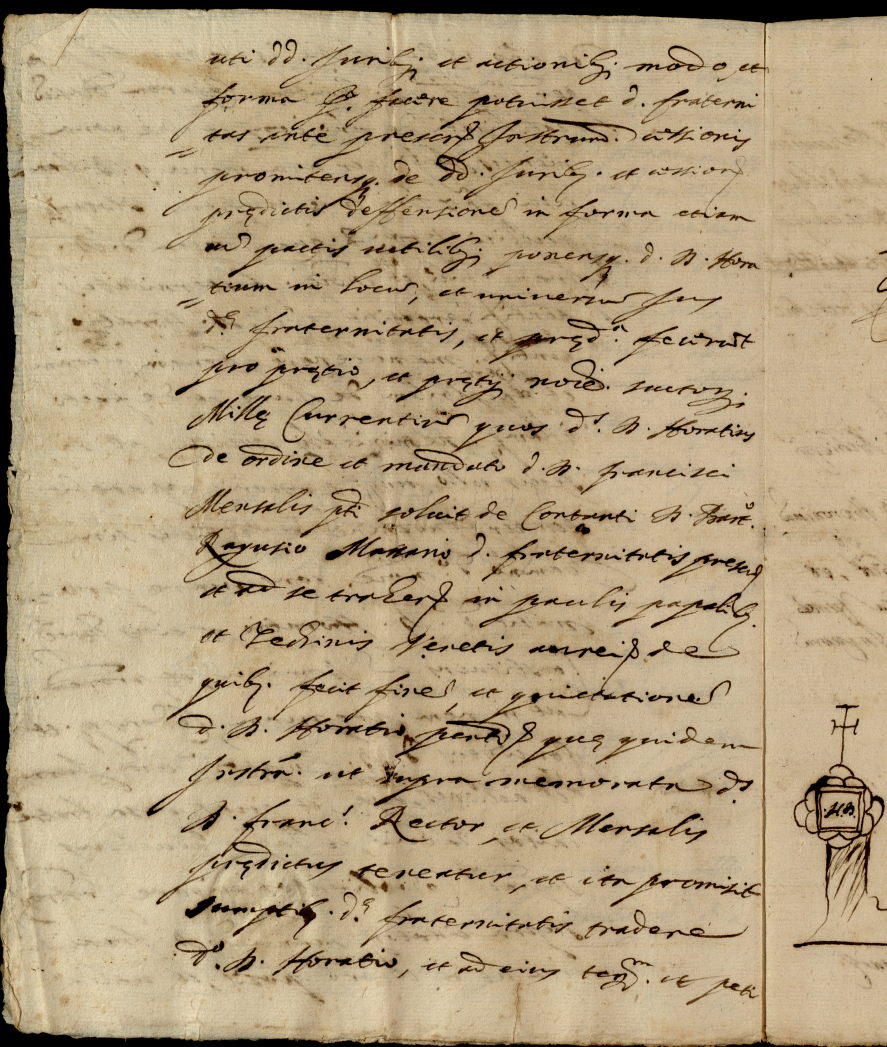 uti dd. Juribq; et actionibq; modo, et
forma qo. facere potuisset d. fraterni
= tas ante presens Instrum. cessionis
promitensq. de dd. Juribq. et cession
prędictis deffensione in forma etiam
cu pactis utilibq; ponensq. d. D. Hora
= tium in locu, et universu Jus
dę fraternitatis, et pręda. fecerut
pro prętio, et prętij noie. scutorq;
Millę Currentiu quos ds. D. Horatius
de ordine et mandato d. D. francisci
Mensalis pti soluit de Contanti D. Barto.
Ragusio Massario d. fraternitatis presen
et ad se traher in paulis papalibq.
et Zechinis Venetis aureis de
quibq. fecit fine, et quietatione
d. D. Horatio, quę quidem
Instra. ut supra memorata ds
D. franci. Rector, et Mensalis
prędictus teneatur, et ita promisit
sumptibq. dę fraternitatis tradere
do. D. Horatio, et ad eius et peti
.H.B.